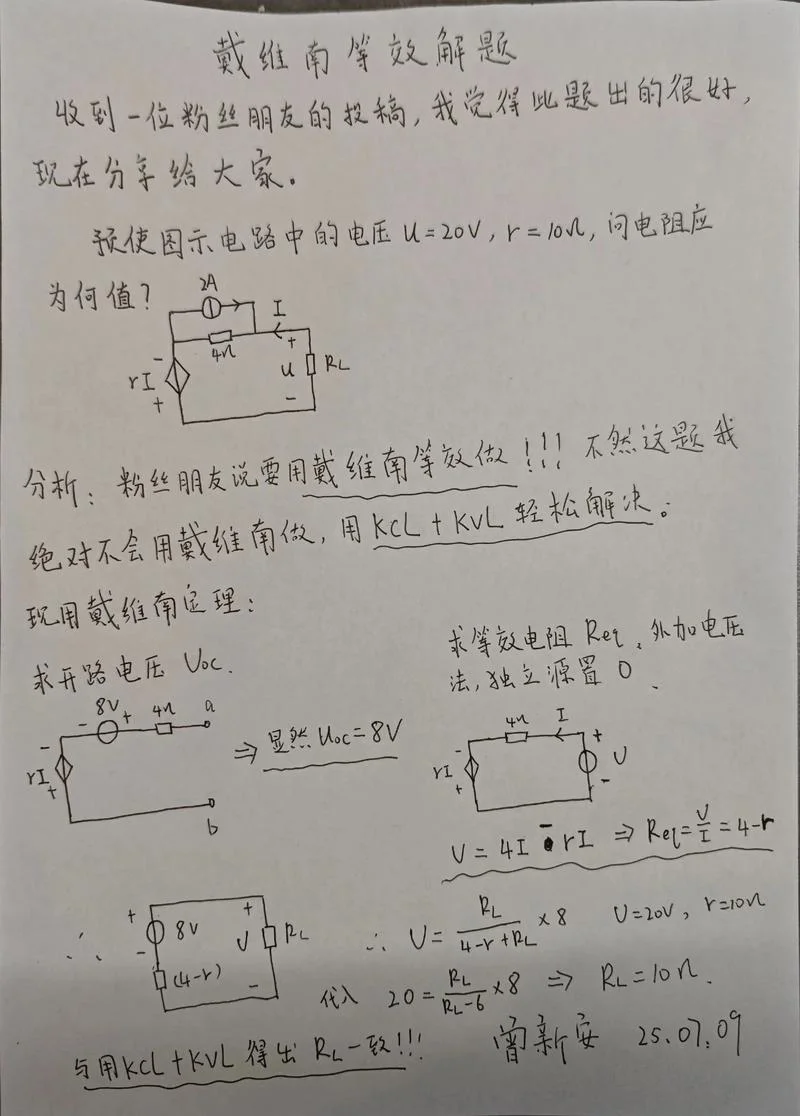 戴维南等效解题
收到一位粉丝朋友的投稿,我觉得此题出的很好,
现在分享给大家。
预使图示电路中的电压 u=20V, r=10Ω, 问电阻应
为何值?
2A
I
4Ω
+
-
rI
u
RL
+
-
分析: 粉丝朋友说要用戴维南等效做!!! 不然这题我
绝对不会用戴维南做, 用KCL+KVL轻松解决。
现用戴维南定理:
求开路电压 Uoc.
8V
- + 4Ω a
-
rI
+
b
⇒ 显然 Uoc=8V
求等效电阻 Req, 外加电压
法, 独立源置 0、
4Ω I
- +
rI U
+ -
U = 4I - rI ⇒ Req = U/I = 4-r
∴
+ 8V -
(4-r)
+ U -
RL
∴ U = RL/(4-r+RL) ×8 U=20V, r=10Ω
代入 20 = RL/(RL-6) ×8 ⇒ RL=10Ω.
与用KCL+KVL得出 RL一致!!!
曾新安 25.07.09